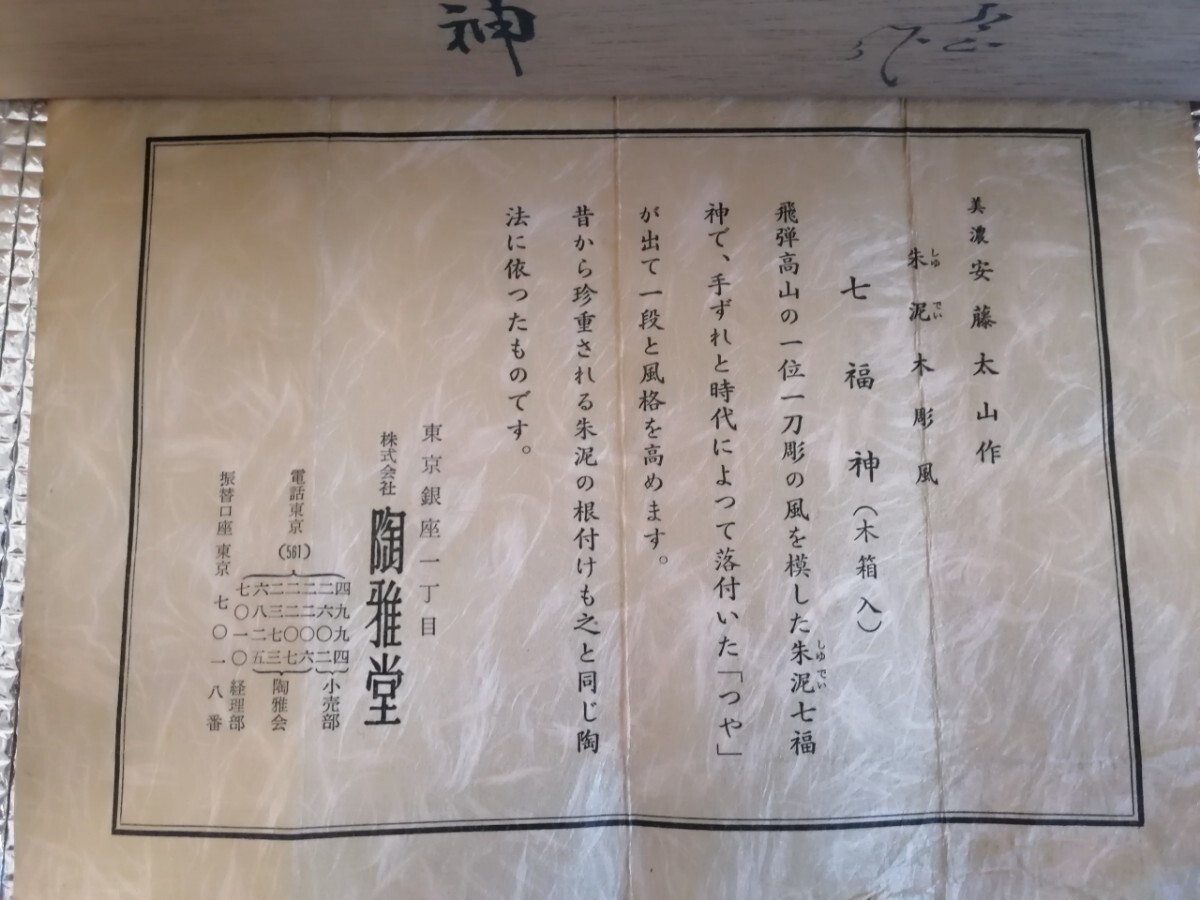 神
美濃 安藤太山作
朱泥木彫風
しゆでい
七福神(木箱入)
飛弾高山の一位一刀彫の風を模した朱泥七福
しゆでい
神で、手ずれと時代によつて落付いた「つや」
が出て一段と風格を高めます。
昔から珍重される朱泥の根付けも之と同じ陶
法に依つたものです。
東京銀座一丁目
株式会社 陶雅堂
電話東京(561)
四九九四
二六〇二
小売部
二二〇六
二二〇七
二三七三
六八二五
陶雅会
七〇一〇 経理部
振替口座 東京 七〇一八番